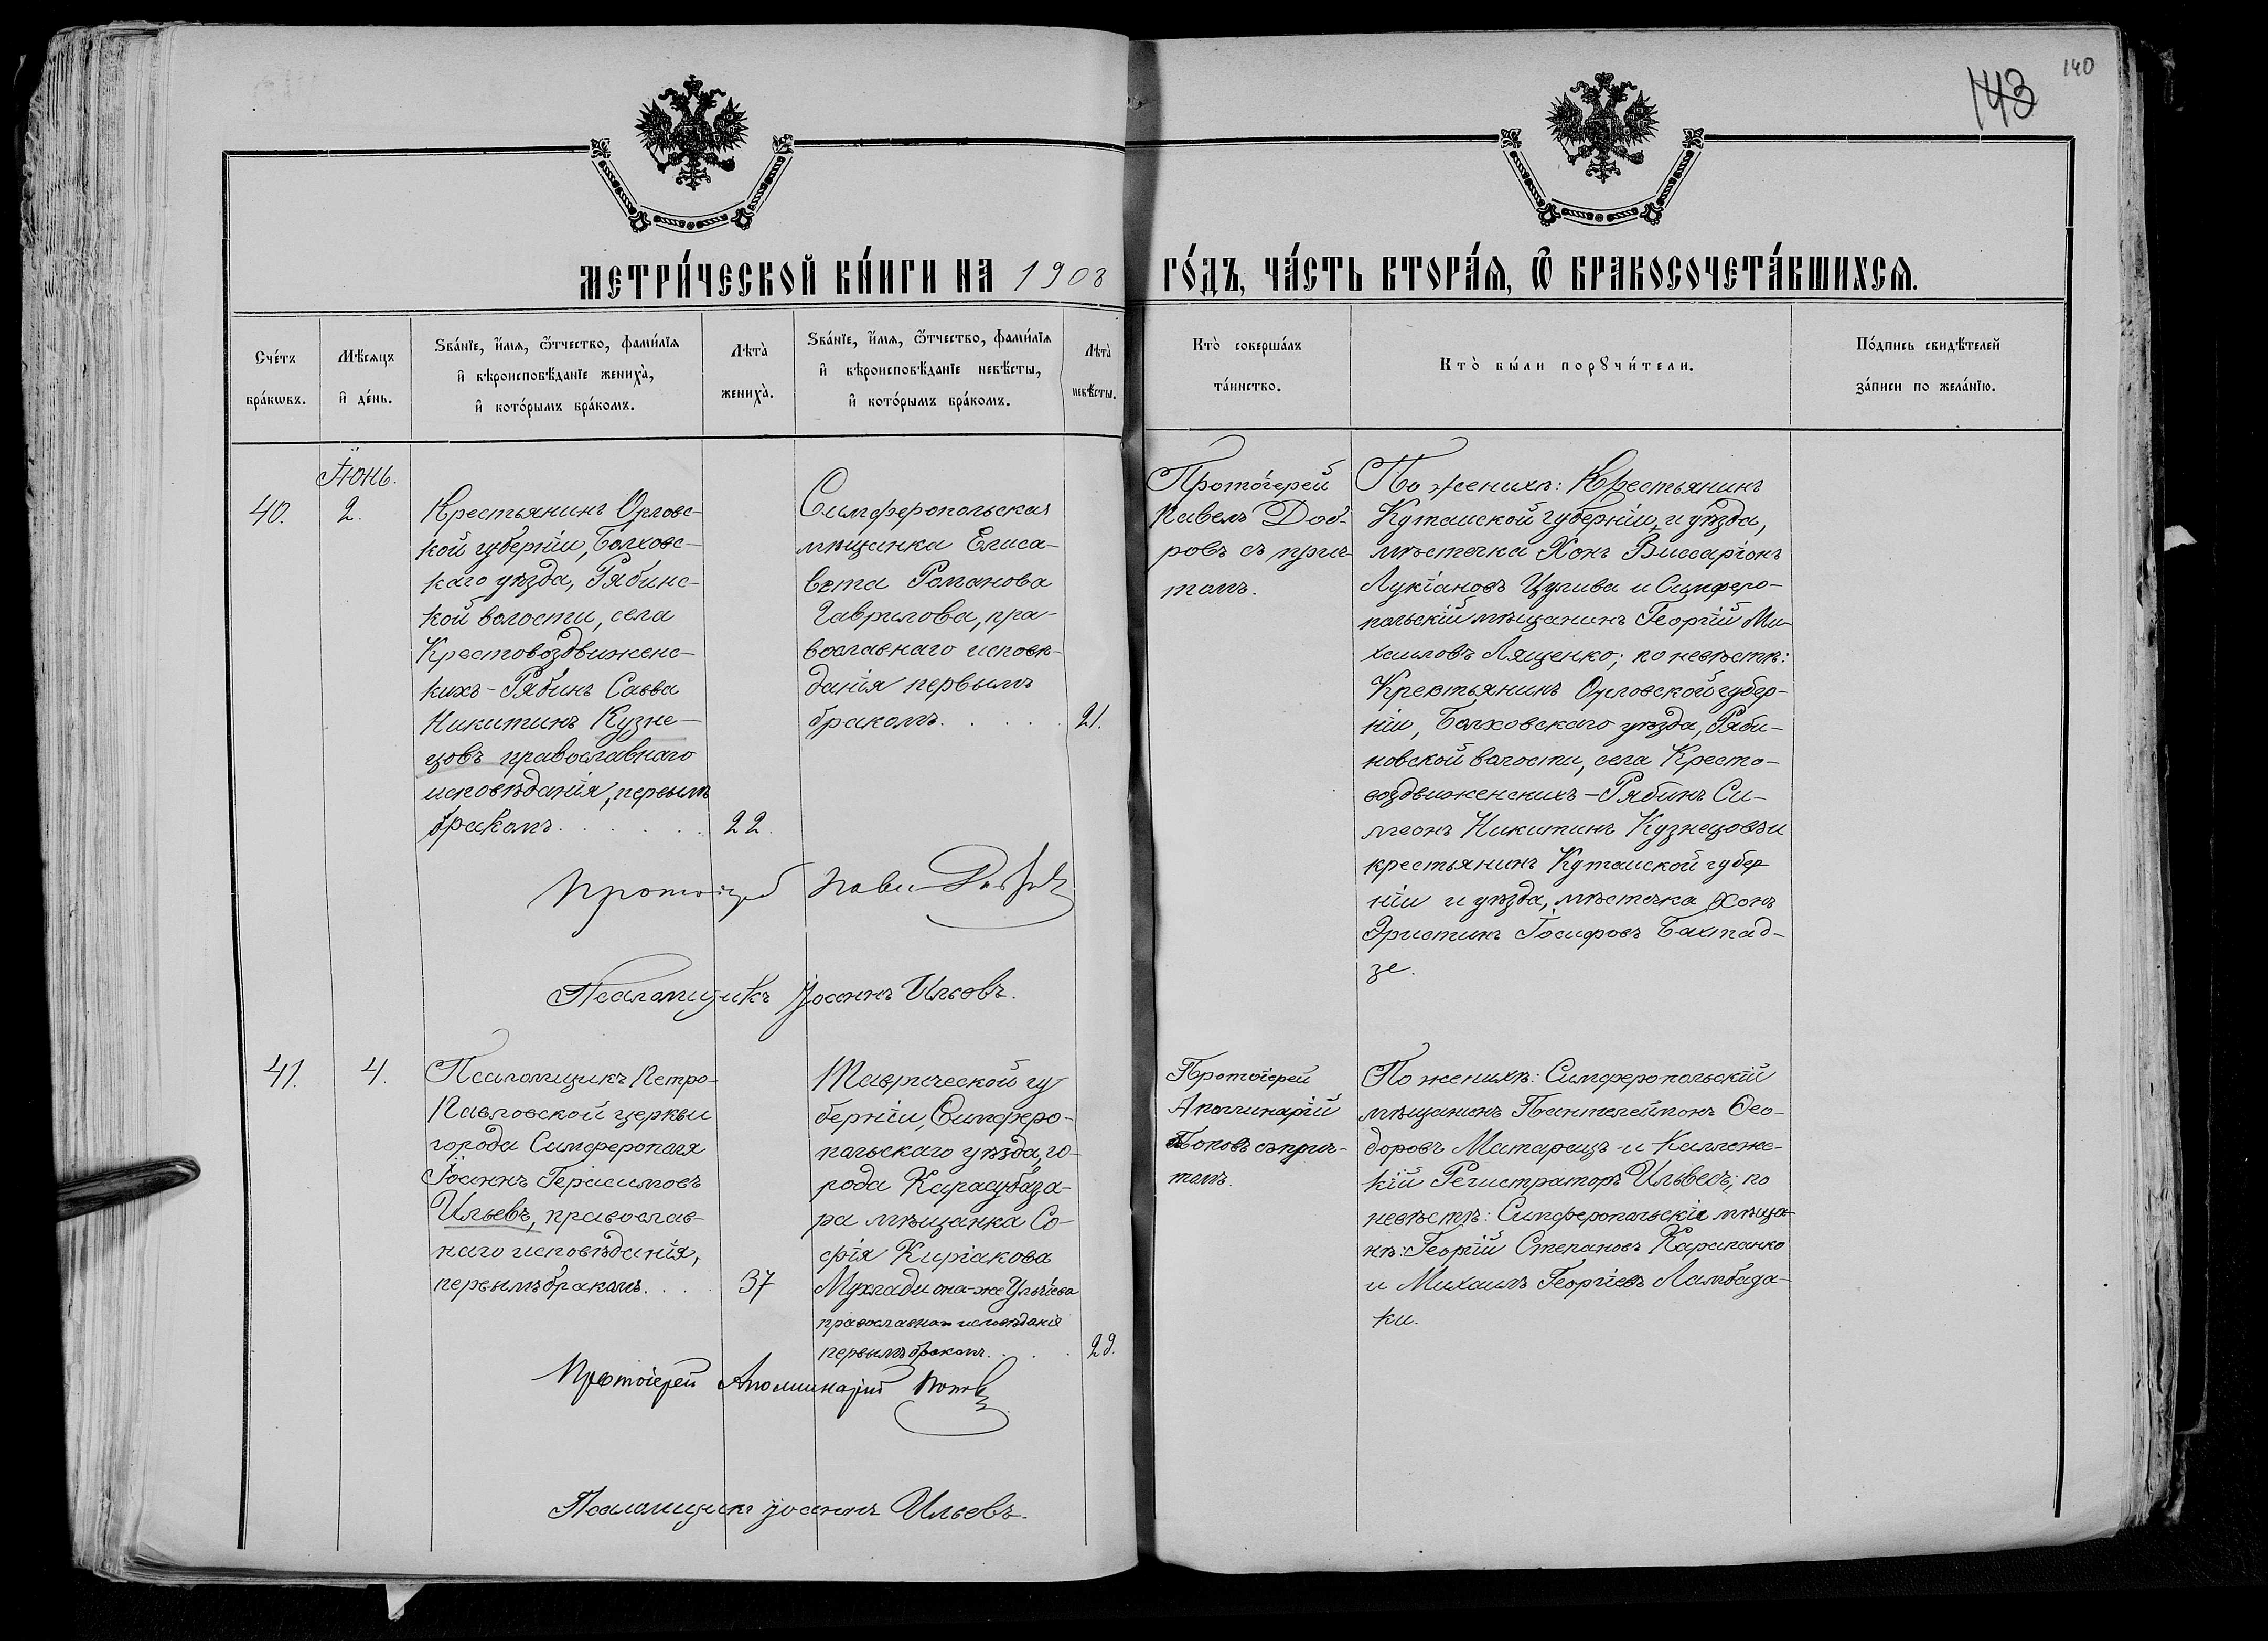 140
143
МЕТРИ́ЧЕСКОЙ КНИ́ГИ НА 1908 ГО́ДЪ, ЧА́СТЬ ВТОРА́Ѧ, Ѿ БРАКОСОЧЕТА́ВШИХСѦ.
Сче́тъ
бра́кѡвъ.
Мѣ́сяцъ
и҆ де́нь.
Ѕва́нїе, и҆́мѧ, ѻ҆́тчество, фами́лїѧ
и҆ вѣроисповѣ́данїе жениха̀,
и҆ кото́рымъ бра́комъ.
Лѣта̀
жениха̀.
Ѕва́нїе, и҆́мѧ, ѻ҆́тчество, фами́лїѧ
и҆ вѣроисповѣ́данїе невѣ́сты,
и҆ кото́рымъ бра́комъ.
Лѣта̀
невѣ́сты.
Кто̀ соверша́лъ
та́инство.
Кто̀ бы́ли порꙋчи́тели.
По́дпись свидѣ́телей
за́писи по жела́нїю.
Іюнь.
40.
2.
Крестьянинъ Орловс-
кой губерніи, Болховс-
каго уѣзда, Рябинс-
кой волости, села
Крестовоздвиженс-
кихъ-Рябинъ Савва
Никитинъ Кузне-
цовъ православнаго
исповѣданія, первымъ
бракомъ.
22.
Симферопольская
мѣщанка Елиса-
вета Романова
Гаврилова, пра-
вославнаго исповѣ-
данія первымъ
бракомъ.
21.
Протоіерей
Павелъ Доб-
ровъ съ прич-
томъ.
По женихѣ: Крестьянинъ
Кутаиской губерніи, и уѣзда,
мѣстечка Хонъ Виссаріонъ
Лукіановъ Цулива и Симферо-
польскій мѣщанинъ Георгій Ми-
хаиловъ Лященко; по невѣстѣ:
Крестьянинъ Орловской губер-
ніи, Болховскаго уѣзда, Ряби-
новской волости, села Кресто-
воздвиженскихъ-Рябинъ Си-
меонъ Никитинъ Кузнецовъ и
крестьянинъ Кутаиской губер
ніи и уѣзда, мѣстечка Хонъ
Эристинъ Іосифовъ Бахтад-
зе.
Протоіерей Павелъ Добровъ
Псаломщикъ Іоаннъ Ильевъ.
41.
4.
Псаломщикъ Петро-
Павловской церкви
города Симферополя
Іоаннъ Герасимовъ
Ильевъ, православ-
наго исповѣданія,
первымъ бракомъ.
37
Таврической гу
берніи, Симферо-
польскаго уѣзда, го-
рода Карасубаза-
ра мѣщанка Со-
фія Киріакова
Мухлади она-же Ульчіева
православнаго исповѣданія
первымъ бракомъ.
29.
Протоіерей
Аполлинарій
Поповъ съ прич-
томъ.
По женихѣ: Симферопольскій
мѣщанинъ Пантелеймонъ Ѳео-
доровъ Матарацъ и Коллеже-
кій Регистраторъ Ильвесъ; по
невѣстѣ: Симферопольскіе мѣща-
нѣ: Георгій Степановъ Карапанко
и Михаилъ Георгіевъ Ламбада-
ки.
Протоіерей Аполлинарій Поповъ
Псаломщикъ Іоаннъ Ильевъ.